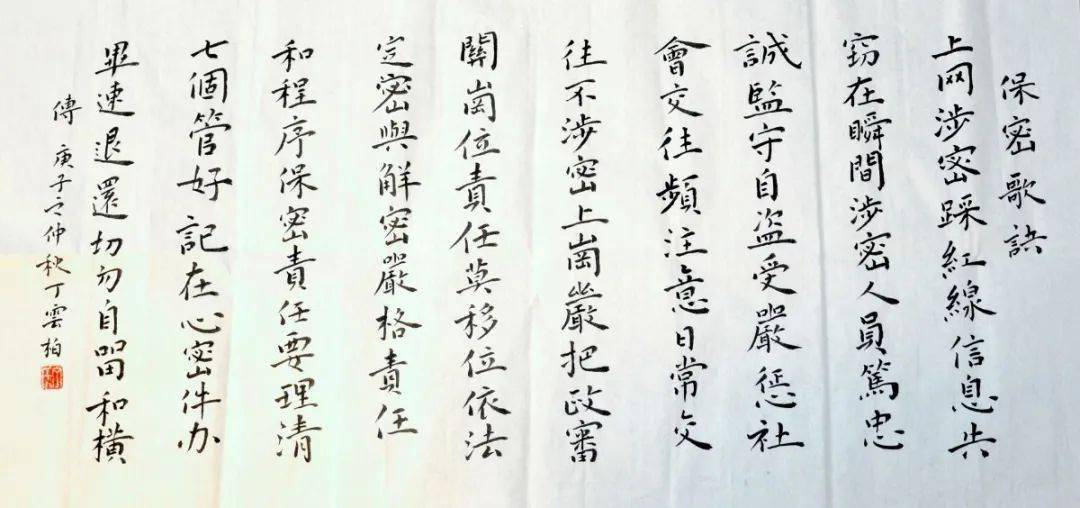 保密歌訣
上网涉密踩紅線信息失
窃在瞬間涉密人員篤忠
誠監守自盗受嚴惩社
會交往頻注意日常交
往不涉密上崗嚴把政審
關崗位責任莫移位依法
定密與解密嚴格責任
和程序保密責任要理清
七個管好記在心密件办
畢速退還切勿自留和橫
傳 庚子之仲秋丁雲柏